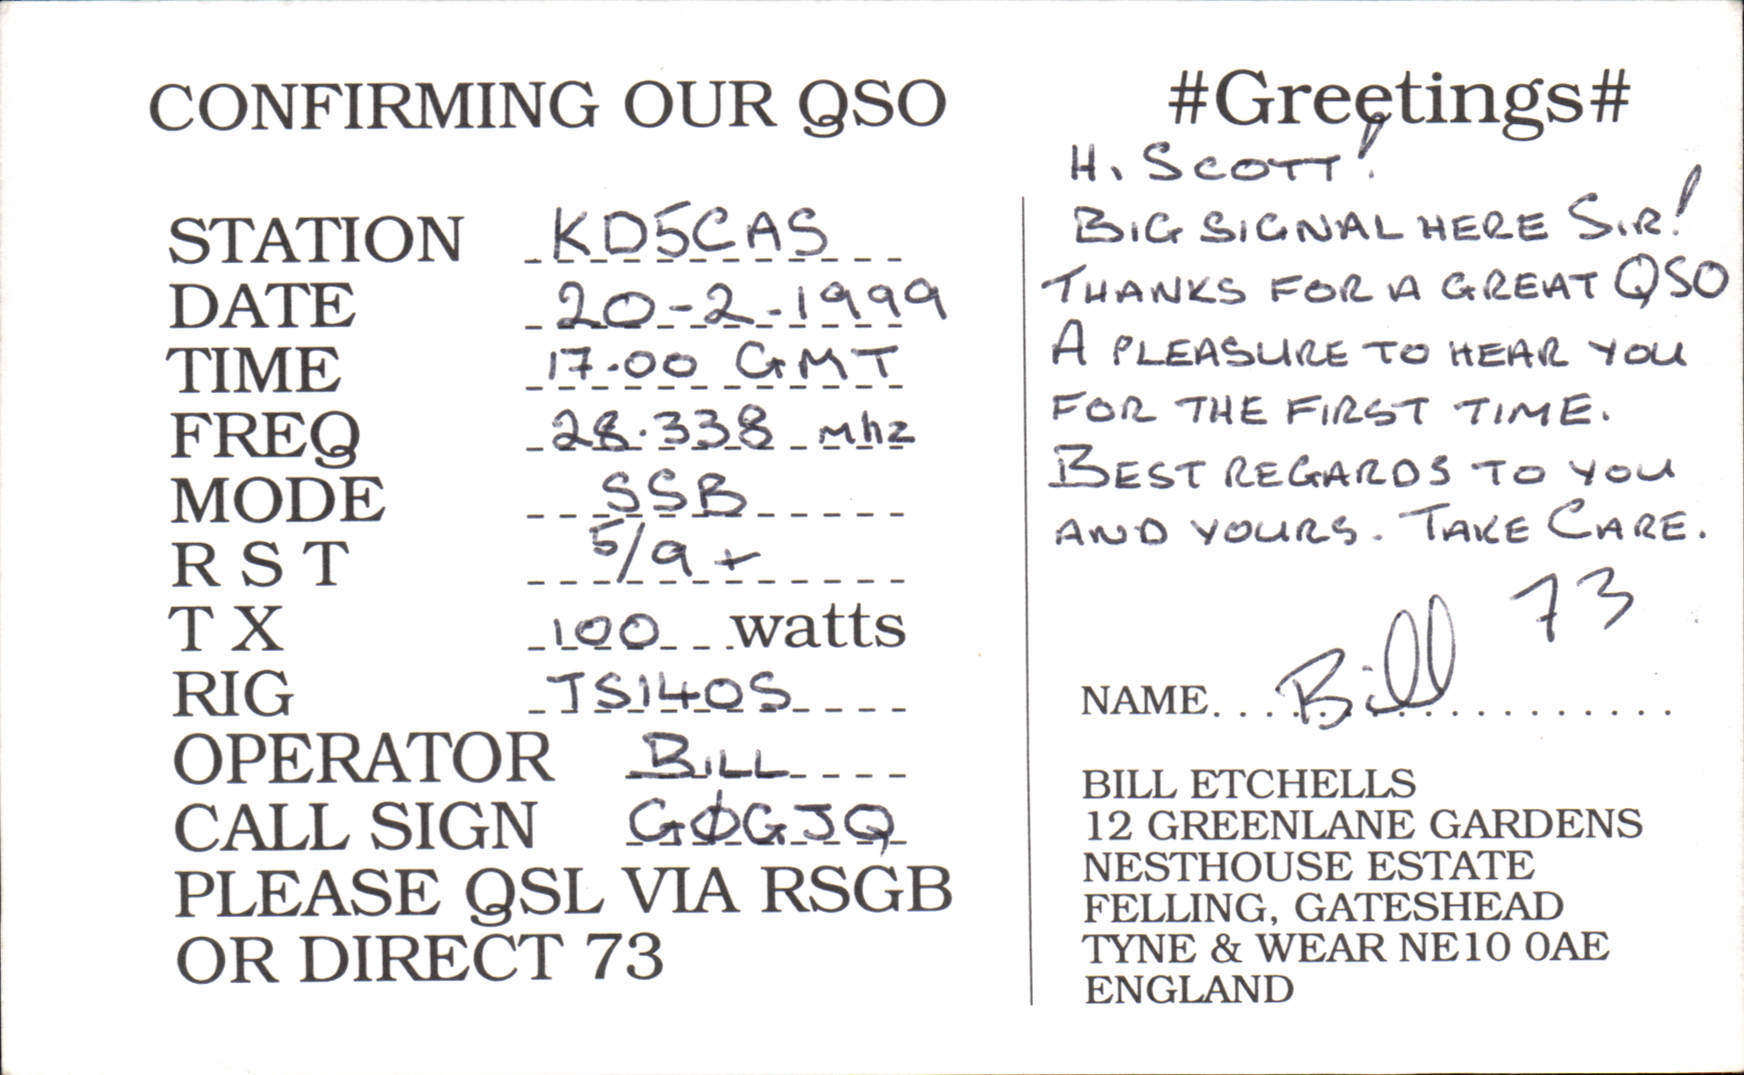 CONFIRMING OUR QSO
STATION KD5CAS
DATE 20-2-1999
TIME 17.00 GMT
FREQ 28.338 mhz
MODE SSB
R S T 5/9+
T X 100 watts
RIG TS140S
OPERATOR BILL
CALL SIGN GØGJQ
PLEASE QSL VIA RSGB
OR DIRECT 73
#Greetings#
Hi SCOTT!
BIG SIGNAL HERE SIR!
THANKS FOR A GREAT QSO
A PLEASURE TO HEAR YOU
FOR THE FIRST TIME.
BEST REGARDS TO YOU
AND YOURS. TAKE CARE.
73
NAME Bill
BILL ETCHELLS
12 GREENLANE GARDENS
NESTHOUSE ESTATE
FELLING, GATESHEAD
TYNE & WEAR NE10 0AE
ENGLAND